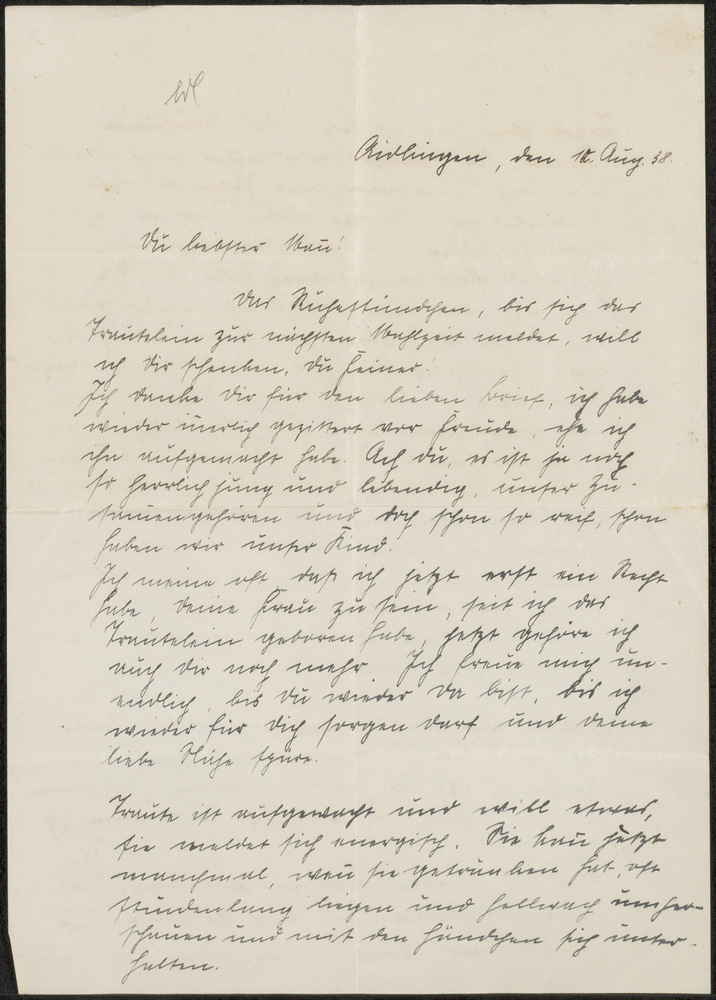 Aidlingen, den 12. Aug. 38.
Du liebster Mañ!
Das Ruhestündchen, bis sich das
Trautelein zur nächsten Mahlzeit meldet, will
ich dir schenken, du feiner!
Ich danke dir für den lieben Brief, ich habe
wieder iñerlich gezittert vor Freude, ehe ich
ihn aufgemacht habe. Ach du, es ist ja noch
so herrlich jung und lebendig, unser Zu-
sam̃engehören und doch schon so reif, schon
haben wir unser Kind.
Ich meine oft, dass ich jetzt erst ein Recht
habe, deine Frau zu sein, seit ich das
Trautelein geboren habe, jetzt gehöre ich
auch dir noch mehr. Ich freue mich un-
endlich, bis du wieder da bist, bis ich
wieder für dich sorgen darf und deine
liebe Nähe spüre.
Traute ist aufgewacht und will etwas,
sie meldet sich energisch. Sie kañ jetzt
manchmal, weñ sie getrunken hat, oft
stundenlang liegen und hellwach umher-
schauen und mit den Händchen sich unter-
halten.